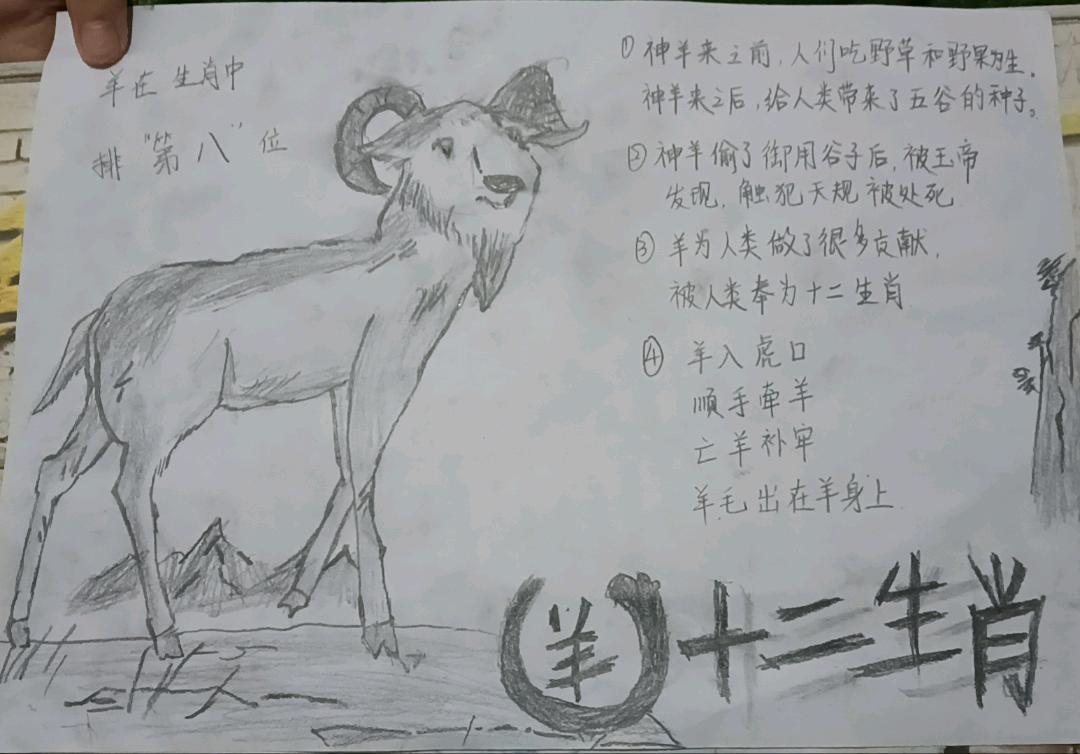 羊在生肖中
排“第八”位
① 神羊来之前,人们吃野草和野果为生。
神羊来之后,给人类带来了五谷的种子。
② 神羊偷了御用谷子后,被玉帝
发现,触犯天规被处死
③ 羊为人类做了很多贡献,
被人类奉为十二生肖
④ 羊入虎口
顺手牵羊
亡羊补牢
羊毛出在羊身上
羊 十二生肖